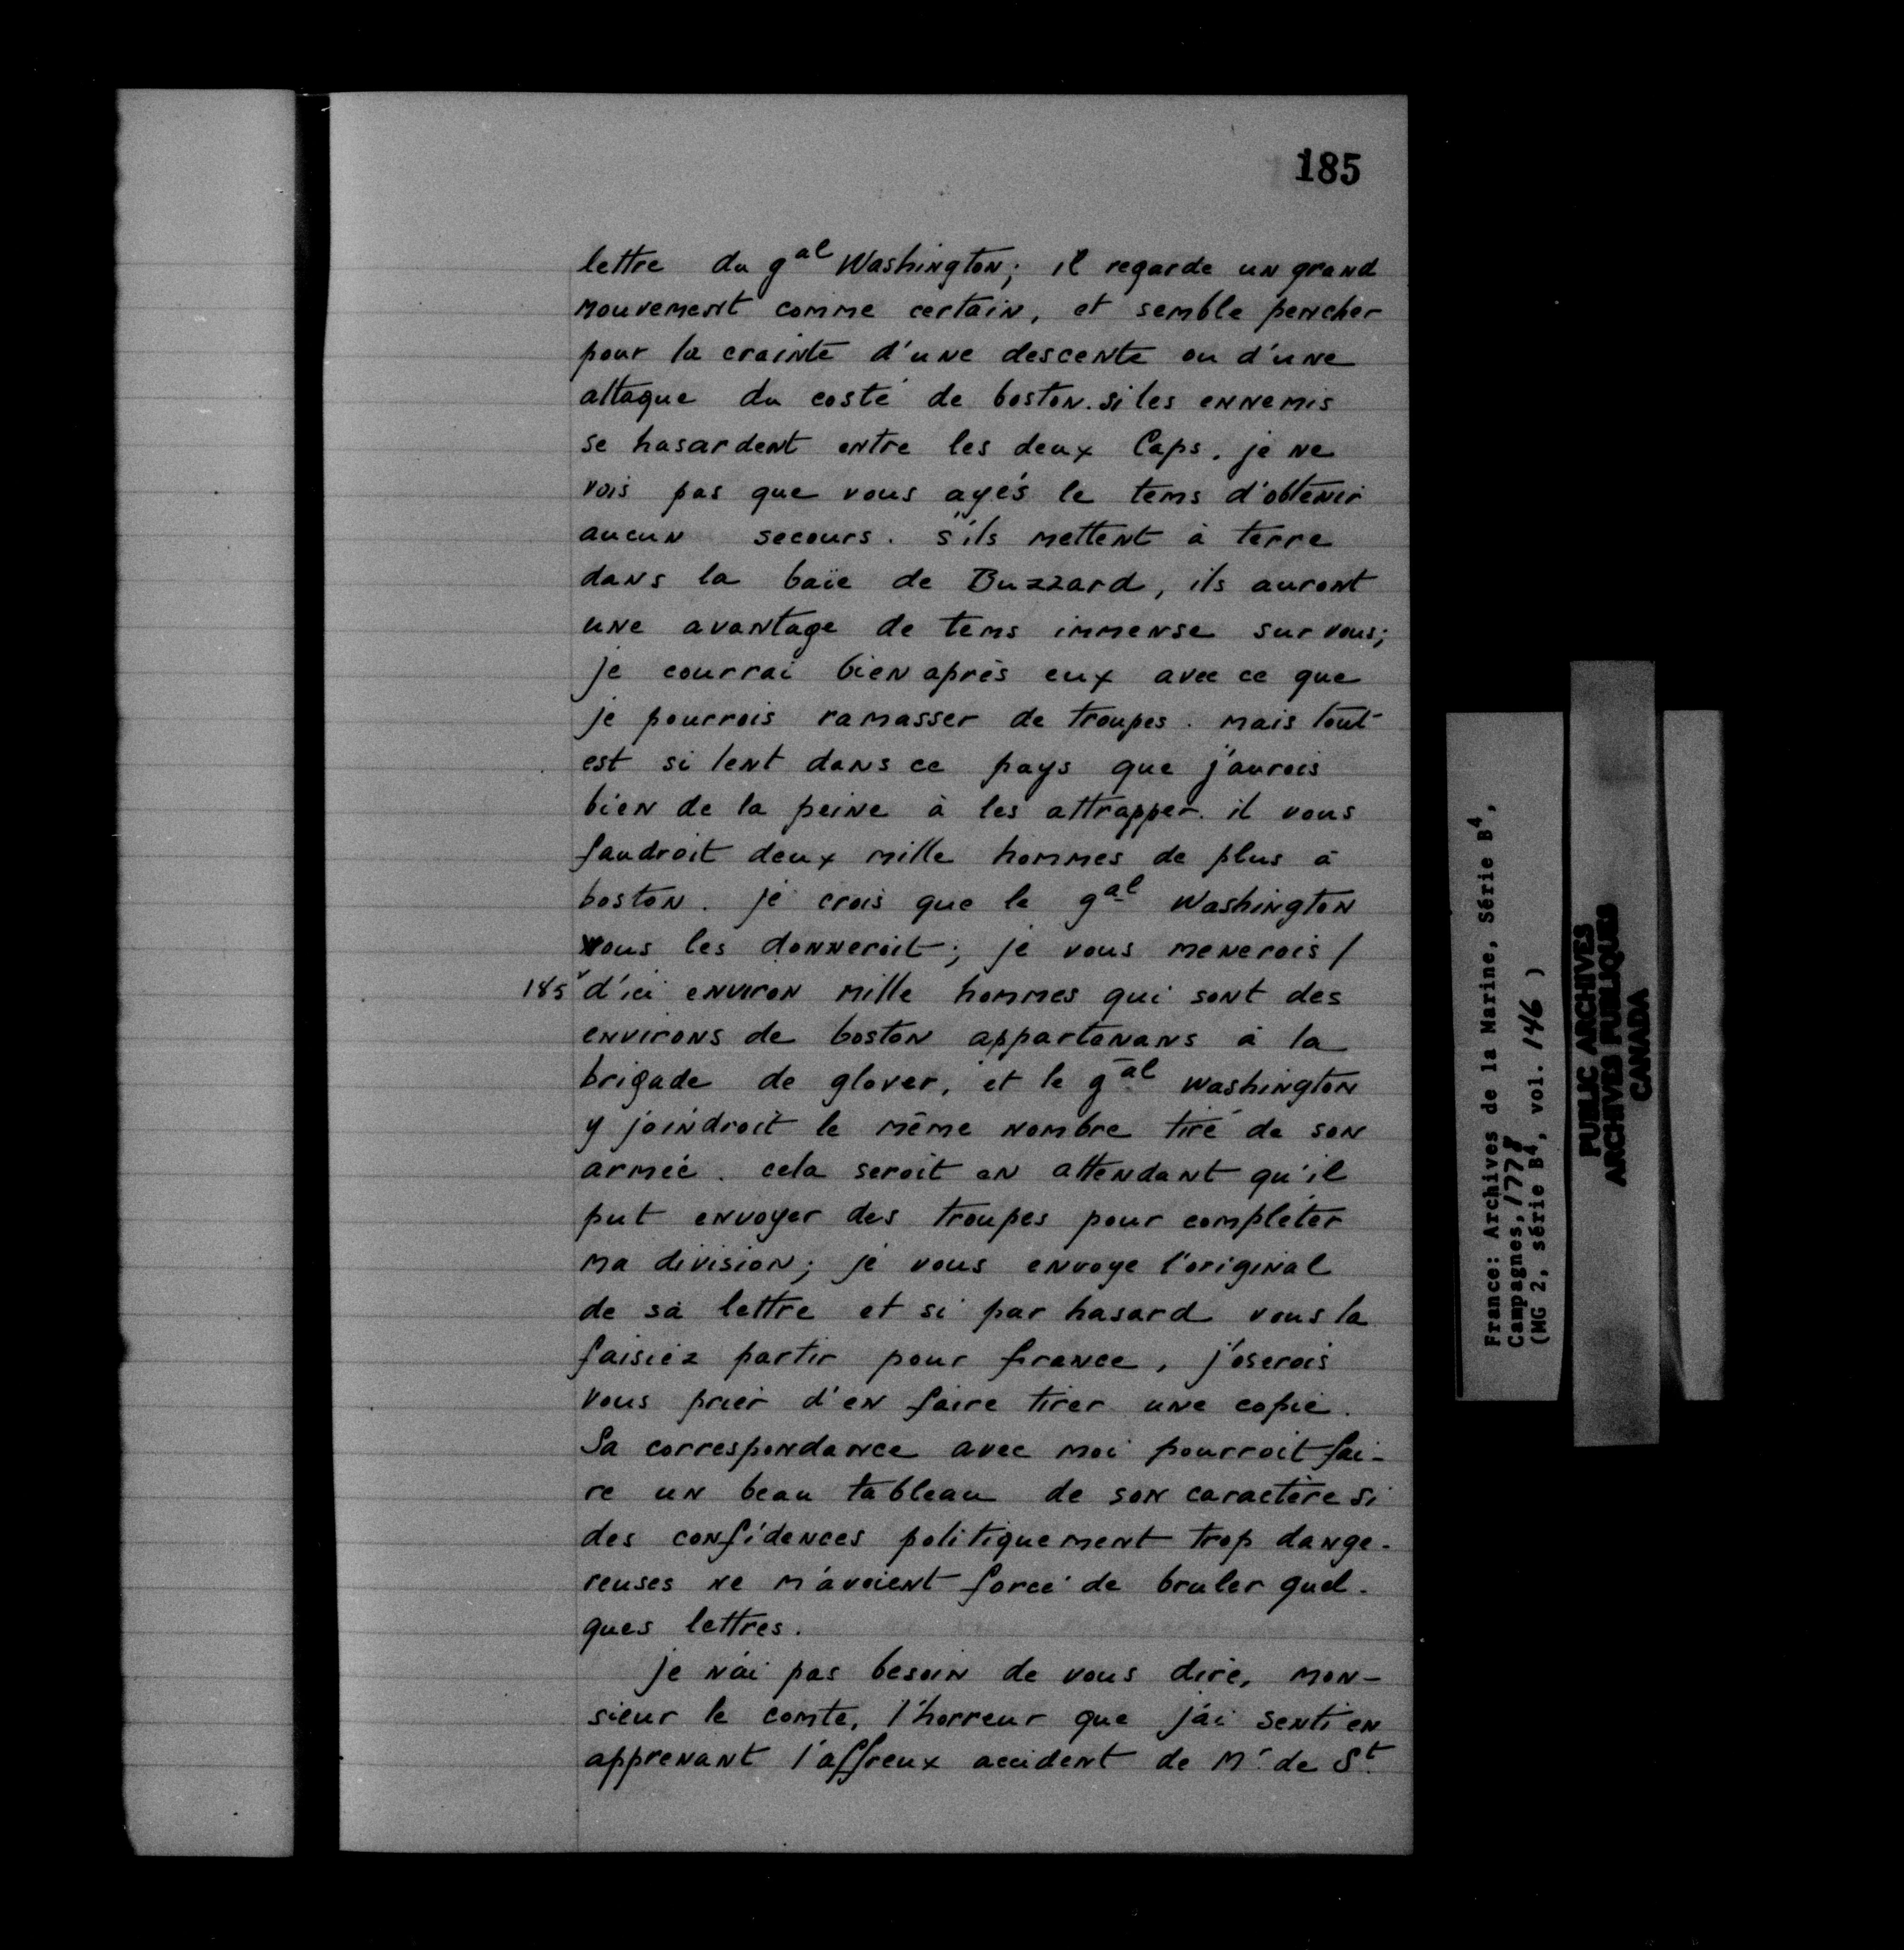 185
lettre du g^al Washington; il regarde un grand
mouvement comme certain, et semble pencher
pour la crainte d'une descente ou d'une
attaque du costé de boston. si les ennemis
se hasardent entre les deux Caps. je ne
vois pas que vous ayés le tems d'obtenir
aucun secours. s'ils mettent à terre
dans la baïe de Buzzard, ils auront
une avantage de tems immense sur vous;
je courrai bien après eux avec ce que
je pourrois ramasser de troupes. mais tout
est si lent dans ce pays que j'aurois
bien de la peine à les attrapper. il vous
faudroit deux mille hommes de plus à
boston. je crois que le g^al Washington
vous les donneroit; je vous menerois /
185^v d'ici environ mille hommes qui sont des
environs de boston appartenans à la
brigade de glover, et le g^al Washington
y joindroit le même nombre tiré de son
armée. cela seroit en attendant qu'il
put envoyer des troupes pour completer
ma division; je vous envoye l'original
de sa lettre et si par hasard vous la
faisiéz partir pour france, j'oserois
vous prier d'en faire tirer une copie.
Sa correspondance avec moi pourroit fai-
re un beau tableau de son caractère si
des confidences politiquement trop dange-
reuses ne m'avoient forcé de bruler quel-
ques lettres.
je n'ai pas besoin de vous dire, mon-
sieur le comte, l'horreur que j'ai senti en
apprenant l'affreux accident de M^r de S^t.
France: Archives de la Marine, Série B4,
Campagnes, 1778
(MG 2, série B4, vol. 146 )
PUBLIC ARCHIVES
ARCHIVES PUBLIQUES
CANADA